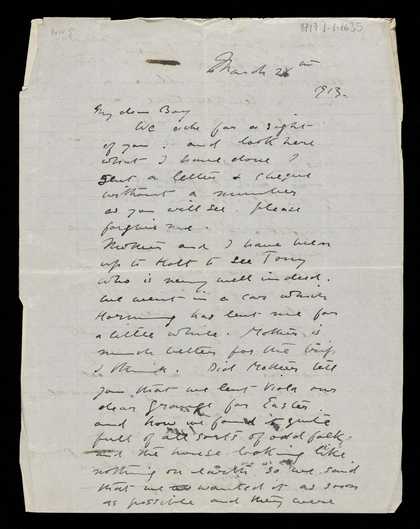 March 26th
1913.
My dear Boy
We ache for a sight
of you. and look here
what I have done I
sent a letter & cheque
without a number
as you will see. please
forgive me.
Mother and I have been
up to Holt to see Tony
who is very well indeed.
we went in a car which
has lent me for
a little while. Mother is
much better for the trip
I think. Did Mother tell
you that we lent Viola our
dear for Easter
and how we found it quite
full of all sorts of odd folk
and the house looking like
nothing on earth so we said
that we wanted it as soon
as possible and they were